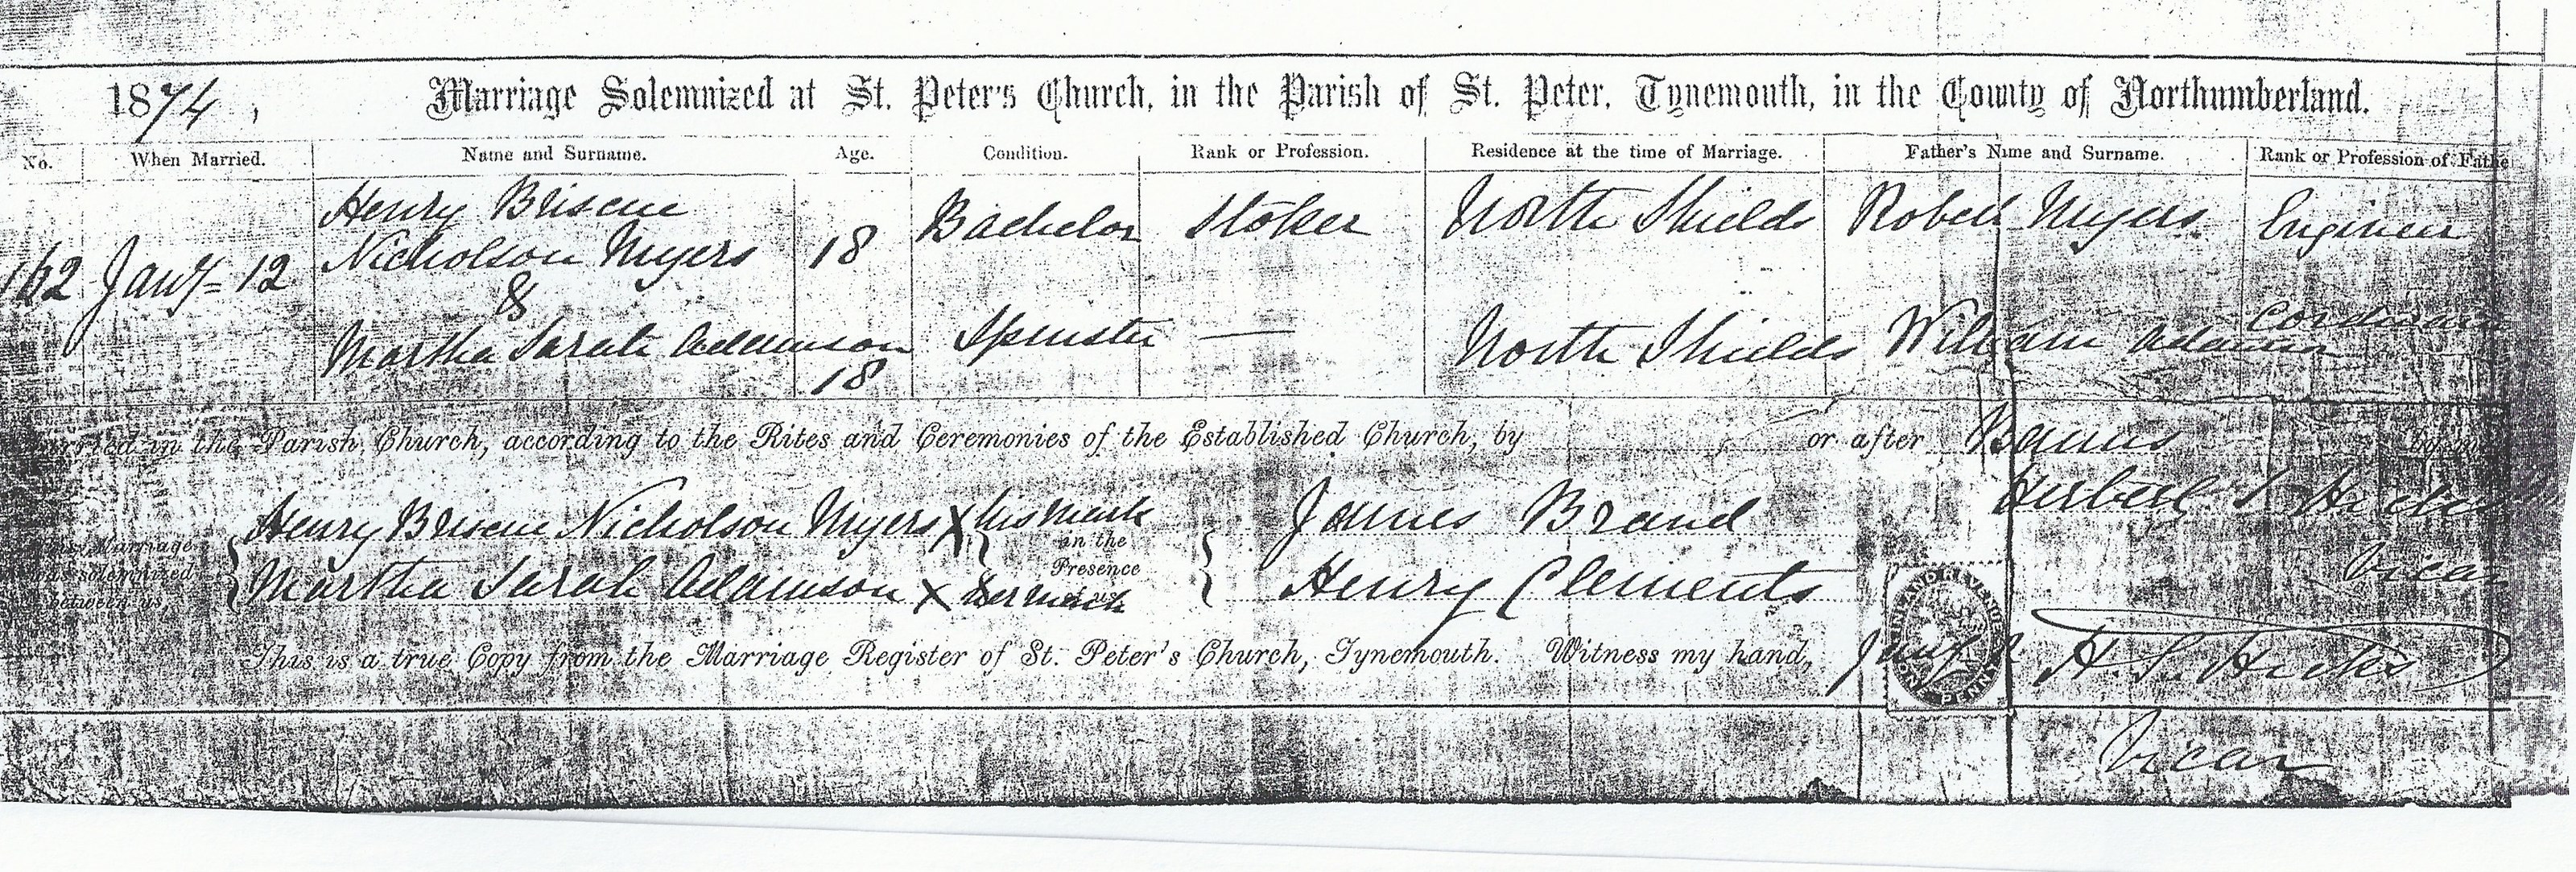 1874, Marriage Solemnized at St. Peter's Church, in the Parish of St. Peter, Tynemouth, in the County of Northumberland.
No. When Married. Name and Surname. Age. Condition. Rank or Profession. Residence at the time of Marriage. Father's Name and Surname. Rank or Profession of Fathe
162 Jany = 12 Henry Briscue Nicholson Myers 18 Bachelor Stoker North Shields Robert Myers Engineer
&
Martha Sarah Adamson 18 Spinster — North Shields William Adamson Cordwainer
Married in the Parish Church, according to the Rites and Ceremonies of the Established Church, by or after Banns by me,
Herbert S Hicks
Vicar
This Marriage was solemnized between us,
Henry Briscue Nicholson Myers X his mark
Martha Sarah Adamson X her mark
in the Presence of us,
James Brand
Henry Clements
INLAND REVENUE ONE PENNY
This is a true Copy from the Marriage Register of St. Peter's Church, Tynemouth. Witness my hand, Jany 12 H. S. Hicks
Vicar